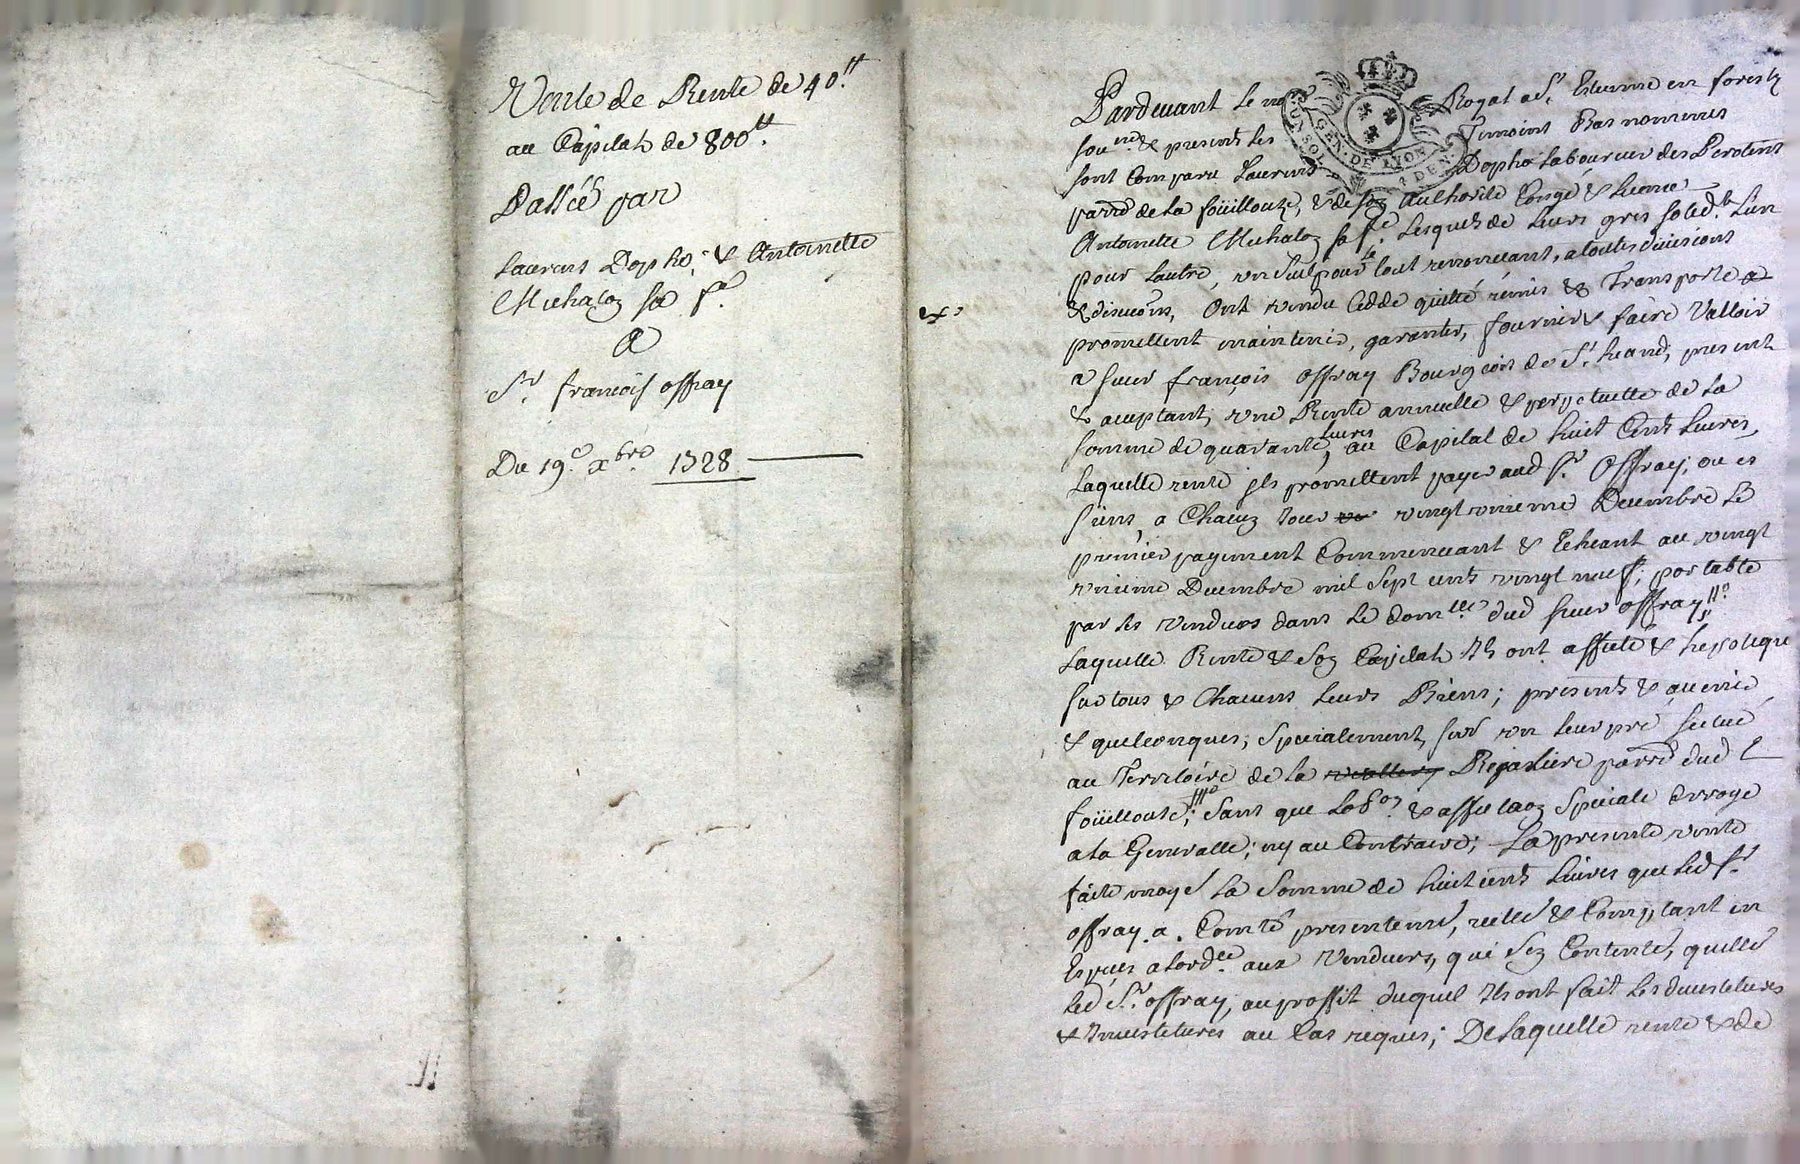 Vente de Rente de 40.tt
au Capitah de 800tt.
Passéé par
Laurens Dopho; & Antoinette
Michalog sa fe.
A
Sr. françois offray
Du 19e. xbre. 1728
Pardevant Le no Royal a St. Estienne en forestz
sou né. & presents Les Temoins Bas nommes
sont Comparu Laurens Dopho Laboureur des Perotins
parrd de La foüillouze, & de soz Authorité Congé & Licence
Antoinette Michaloz sa fe. Lesquels de Leurs gres soled.t L'un
pour Lautre, un seul pour le tout renonceant, a toutes divisions
& discuons, Ont vendu Cedde quitté remis & Transporté a
promettent maintenir, garantir, fournir & faire Valloir
a sieur françois offray Bourgeois de St. heand, present
& aceptant, une Rente annuelle & perpetuelle de La
somme de quarante Livres, au Capital de huict Cents Livres,
Laquelle rente jls promettent payer aud Sr. Offray; ou es
siens, a Chacuz Jour vingt unieme Decembre Le
premier payement Commenceant & Echeant au vingt
unieme Decembre mil sept cents vingt neuf; portable
par Les vendurs dans Le domlle. dud sieur offray,
Laquelle Rente & soz Capitah Ils ont affecté & hepoteque
sur tous & Chacuns Leurs Biens; presents & avenir
& quelconques; Specialement, sur un Leur pré scitué
au Territoire de La Rejasliere parrd dud L
foüillouse; sans que Lobon. & affectaoz Speciale derroge
a La Generalle; ny au Contraire; La presente vente
faite moye La Somme de huit cents Livres que Led Sr.
offray. a. Comté presentemt, réelle & Comptant en
Espces a lordce. aux Vendurs, qui sez Contente, quitté
Led Sr. offray; au proffit duquel Ils ont fait Les devestitures
& Investitures au Cas reques; De Laquelle rente & de
GEN. DE LYON